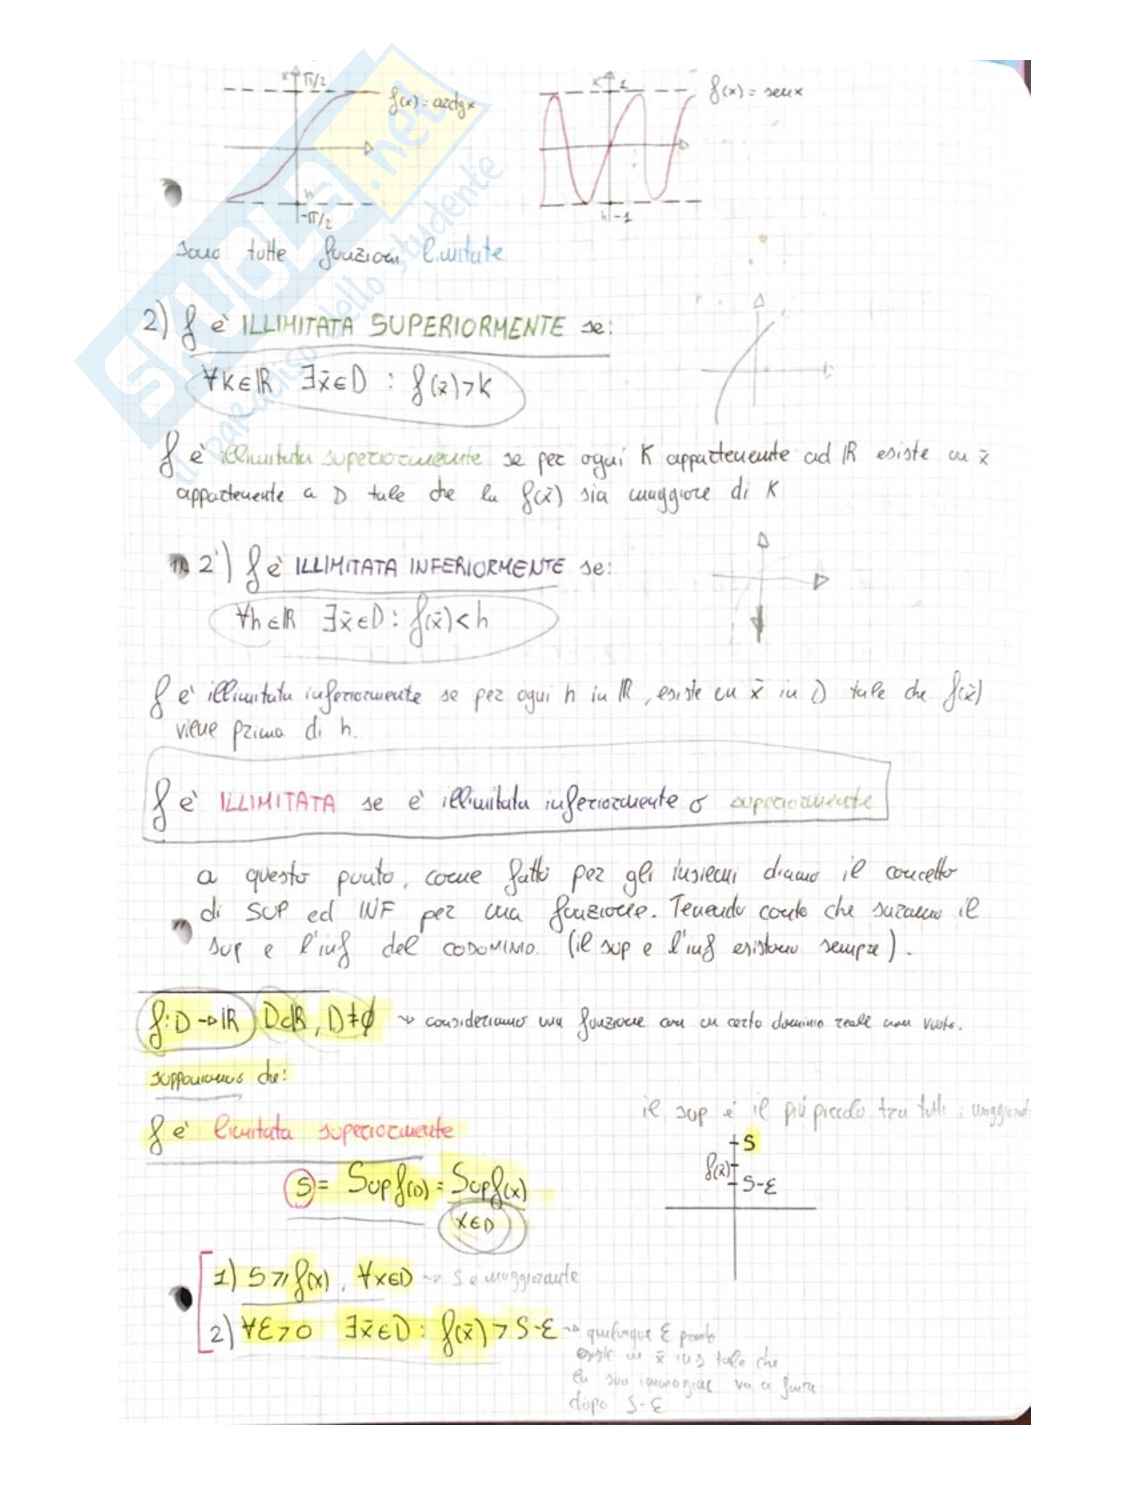 K π/2
f(x) = arctgx
h
-π/2
K 1
f(x) = senx
h -1
sono tutte funzioni limitate
2) f è ILLIMITATA SUPERIORMENTE se:
∀K∈ℝ ∃x̄∈D : f(x̄)>K
f è illimitata superiormente se per ogni K appartenente ad ℝ esiste un x̄
appartenente a D tale che la f(x̄) sia maggiore di K
2') f è ILLIMITATA INFERIORMENTE se:
∀h∈ℝ ∃x̄∈D : f(x̄)<h
f è illimitata inferiormente se per ogni h in ℝ, esiste un x̄ in D tale che f(x̄)
viene prima di h.
f è ILLIMITATA se è illimitata inferiormente o superiormente
a questo punto, come fatto per gli insiemi diamo il concetto
di SUP ed INF per una funzione. Tenendo conto che saranno il
sup e l'inf del CODOMINIO. (il sup e l'inf esistono sempre).
f: D→ℝ D⊂ℝ, D≠∅ → consideriamo una funzione con un certo dominio reale non vuoto.
supponiamo che:
f è limitata superiormente
il sup è il più piccolo tra tutti i maggioranti
S
f(x̄)
S-ε
S = Sup f(D) = Sup f(x)
x∈D
1) S ≥ f(x), ∀x∈D → S è maggiorante
2) ∀ε>0 ∃x̄∈D : f(x̄) > S-ε → qualunque ε prendo
esiste un x̄ tale che
la sua immagine va a finire
dopo S-ε
SKUOLA.net
il paradiso dello studente